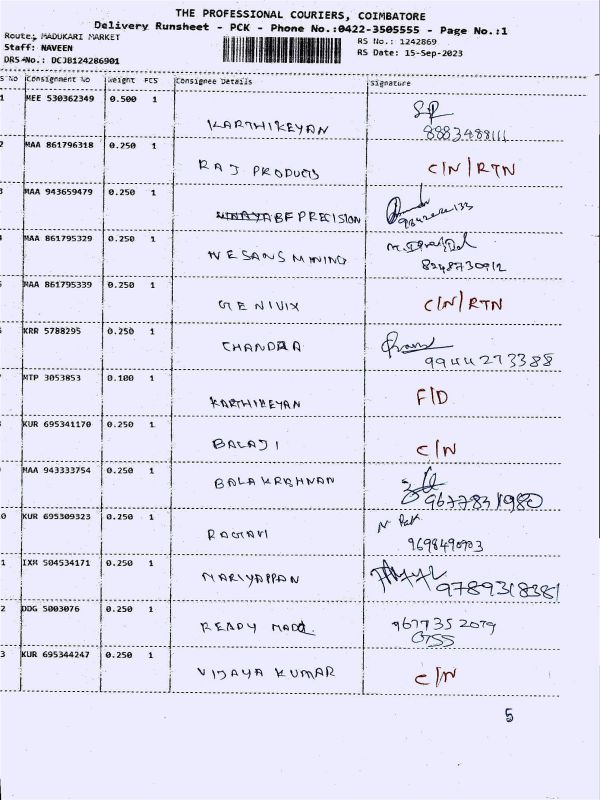 THE PROFESSIONAL COURIERS, COIMBATORE
Delivery Runsheet - PCK - Phone No.:0422-3505555 - Page No.:1
Route: MADUKARI MARKET
RS No.: 1242869
Staff: NAVEEN
RS Date: 15-Sep-2023
DRS No.: DCJB124286901
S No Consignment No Weight PCS Consignee Details Signature
1 MEE 530362349 0.500 1
KARTHIKEYAN 8883488111
2 MAA 861796318 0.250 1
RAJ PRODUCTS C/N/RTN
3 MAA 943659479 0.250 1
BF PRECISION
4 MAA 861795329 0.250 1
WESANS MINING 8248730912
5 MAA 861795339 0.250 1
GENIVIX C/N/RTN
6 KRR 5788295 0.250 1
CHANDRA 9944273388
7 MTP 3053853 0.100 1
KARTHIKEYAN F/D
8 KUR 695341170 0.250 1
BALAJI C/N
9 MAA 943333754 0.250 1
BALAKRISHNAN 9677831980
0 KUR 695309323 0.250 1
9698490903
1 IXM 504534171 0.250 1
MARIYAPPAN 9789318381
2 DDG 5003076 0.250 1
READY MADE 9677352079
3 KUR 695344247 0.250 1
VIJAYA KUMAR C/N
5